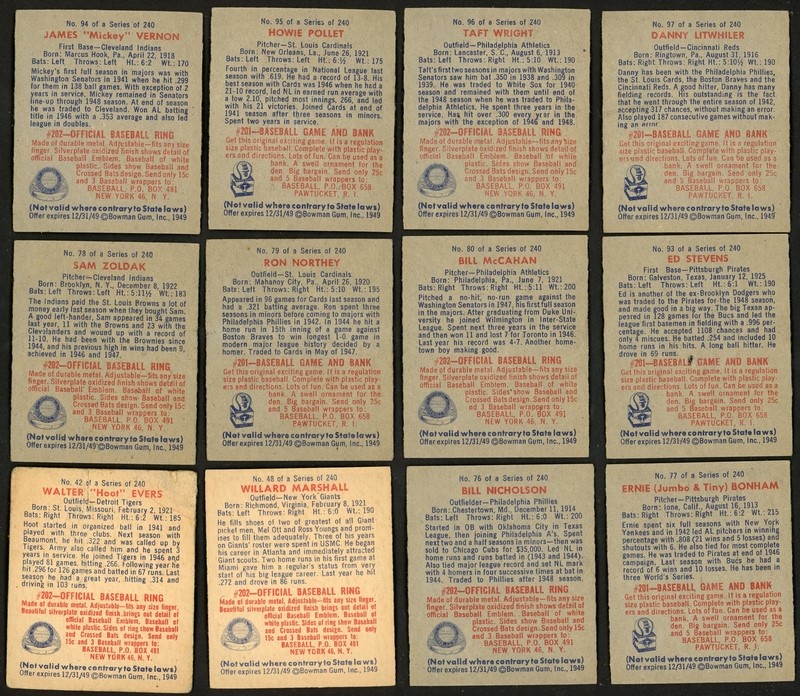 No. 94 of a Series of 240
JAMES "Mickey" VERNON
First Base—Cleveland Indians
Born: Marcus Hook, Pa., April 22, 1918
Bats: Left Throws: Left Ht.: 6:2 Wt.: 170
Mickey's first full season in majors was with
Washington Senators in 1941 when he hit .299
for them in 138 ball games. With exception of 2
years in service, Mickey remained in Senators
line-up through 1948 season. At end of season
he was traded to Cleveland. Won AL batting
title in 1946 with a .353 average and also led
league in doubles.
#202—OFFICIAL BASEBALL RING
Made of durable metal. Adjustable—fits any size
finger. Silverplate oxidized finish shows detail of
official Baseball Emblem. Baseball of white
plastic. Sides show Baseball and
Crossed Bats design. Send only 15c
and 3 Baseball wrappers to:
BASEBALL, P.O. BOX 491
NEW YORK 46, N. Y.
(Not valid where contrary to State laws)
Offer expires 12/31/49 ©Bowman Gum, Inc., 1949
No. 95 of a Series of 240
HOWIE POLLET
Pitcher—St. Louis Cardinals
Born: New Orleans, La., June 26, 1921
Bats: Left Throws: Left Ht.: 6:½ Wt.: 175
Fourth in percentage in National League last
season with .619. He had a record of 13-8. His
best season with Cards was 1946 when he had a
21-10 record, led NL in earned run average with
a low 2.10, pitched most innings, 266, and led
with his 21 victories. Joined Cards at end of
1941 season after three seasons in minors.
Spent two years in service.
#201—BASEBALL GAME AND BANK
Get this original exciting game. It is a regulation
size plastic baseball. Complete with plastic play-
ers and directions. Lots of fun. Can be used as a
bank. A swell ornament for the
den. Big bargain. Send only 25c
and 5 Baseball wrappers to:
BASEBALL, P.O. BOX 658
PAWTUCKET, R. I.
(Not valid where contrary to State laws)
Offer expires 12/31/49 ©Bowman Gum, Inc., 1949
No. 96 of a Series of 240
TAFT WRIGHT
Outfield—Philadelphia Athletics
Born: Lancaster, S. C., August 6, 1913
Bats: Left Throws: Right Ht.: 5:10 Wt.: 190
Taft's first two seasons in majors with Washington
Senators saw him bat .350 in 1938 and .309 in
1939. He was traded to White Sox for 1940
season and remained with them until end of
the 1948 season when he was traded to Phila-
delphia Athletics. He spent three years in the
service. Has hit over .300 every year in the
majors with the exception of 1946 and 1948.
#202—OFFICIAL BASEBALL RING
Made of durable metal. Adjustable—fits any size
finger. Silverplate oxidized finish shows detail of
official Baseball Emblem. Baseball of white
plastic. Sides show Baseball and
Crossed Bats design. Send only 15c
and 3 Baseball wrappers to:
BASEBALL, P.O. BOX 491
NEW YORK 46, N. Y.
(Not valid where contrary to State laws)
Offer expires 12/31/49 ©Bowman Gum, Inc., 1949
No. 97 of a Series of 240
DANNY LITWHILER
Outfield—Cincinnati Reds
Born: Ringtown, Pa., August 31, 1916
Bats: Right Throws: Right Ht.: 5:10½ Wt.: 190
Danny has been with the Philadelphia Phillies,
the St. Louis Cards, the Boston Braves and the
Cincinnati Reds. A good hitter, Danny has many
fielding records. His outstanding is the fact
that he went through the entire season of 1942,
accepting 317 chances, without making an error.
Also played 187 consecutive games without mak-
ing an error.
#201—BASEBALL GAME AND BANK
Get this original exciting game. It is a regulation
size plastic baseball. Complete with plastic play-
ers and directions. Lots of fun. Can be used as a
bank. A swell ornament for the
den. Big bargain. Send only 25c
and 5 Baseball wrappers to:
BASEBALL, P.O. BOX 658
PAWTUCKET, R. I.
(Not valid where contrary to State laws)
Offer expires 12/31/49 ©Bowman Gum, Inc., 1949
No. 78 of a Series of 240
SAM ZOLDAK
Pitcher—Cleveland Indians
Born: Brooklyn, N. Y., December 8, 1922
Bats: Left Throws: Left Ht.: 5:11½ Wt.: 183
The Indians paid the St. Louis Browns a lot of
money early last season when they bought Sam.
A good left-hander, Sam appeared in 34 games
last year, 11 with the Browns and 23 with the
Clevelanders and wound up with a record of
11-10. He had been with the Brownies since
1944, and his previous high in wins had been 9,
achieved in 1946 and 1947.
#202—OFFICIAL BASEBALL RING
Made of durable metal. Adjustable—fits any size
finger. Silverplate oxidized finish shows detail of
official Baseball Emblem. Baseball of white
plastic. Sides show Baseball and
Crossed Bats design. Send only 15c
and 3 Baseball wrappers to:
BASEBALL, P.O. BOX 491
NEW YORK 46, N. Y.
(Not valid where contrary to State laws)
Offer expires 12/31/49 ©Bowman Gum, Inc., 1949
No. 79 of a Series of 240
RON NORTHEY
Outfield—St. Louis Cardinals
Born: Mahanoy City, Pa., April 26, 1920
Bats: Left Throws: Right Ht.: 5:10 Wt.: 195
Appeared in 96 games for Cards last season and
had a .321 batting average. Ron spent three
seasons in minors before coming to majors with
Philadelphia Phillies in 1942. In 1944 he hit a
home run in 15th inning of a game against
Boston Braves to win longest 1-0 game in
modern major league history decided by a
homer. Traded to Cards in May of 1947.
#201—BASEBALL GAME AND BANK
Get this original exciting game. It is a regulation
size plastic baseball. Complete with plastic play-
ers and directions. Lots of fun. Can be used as a
bank. A swell ornament for the
den. Big bargain. Send only 25c
and 5 Baseball wrappers to:
BASEBALL, P.O. BOX 658
PAWTUCKET, R. I.
(Not valid where contrary to State laws)
Offer expires 12/31/49 ©Bowman Gum, Inc., 1949
No. 80 of a Series of 240
BILL McCAHAN
Pitcher—Philadelphia Athletics
Born: Philadelphia, Pa., June 7, 1921
Bats: Right Throws: Right Ht.: 5:11 Wt.: 200
Pitched a no-hit, no-run game against the
Washington Senators in 1947, his first full season
in the majors. After graduating from Duke Uni-
versity he joined Wilmington in Inter-State
League. Spent next three years in the service
and then won 11 and lost 7 for Toronto in 1946.
Last year his record was 4-7. Another home-
town boy making good.
#202—OFFICIAL BASEBALL RING
Made of durable metal. Adjustable—fits any size
finger. Silverplate oxidized finish shows detail of
official Baseball Emblem. Baseball of white
plastic. Sides show Baseball and
Crossed Bats design. Send only 15c
and 3 Baseball wrappers to:
BASEBALL, P.O. BOX 491
NEW YORK 46, N. Y.
(Not valid where contrary to State laws)
Offer expires 12/31/49 ©Bowman Gum, Inc., 1949
No. 93 of a Series of 240
ED STEVENS
First Base—Pittsburgh Pirates
Born: Galveston, Texas, January 12, 1925
Bats: Left Throws: Left Ht.: 6:1 Wt.: 190
Ed is another of the ex-Brooklyn Dodgers who
was traded to the Pirates for the 1948 season,
and made good in a big way. The big Texan ap-
peared in 128 games for the Bucs and led the
league first basemen in fielding with a .996 per-
centage. He accepted 1108 chances and had
only 4 miscues. He batted .254 and included 10
home runs in his hits. A long ball hitter, He
drove in 69 runs.
#201—BASEBALL GAME AND BANK
Get this original exciting game. It is a regulation
size plastic baseball. Complete with plastic play-
ers and directions. Lots of fun. Can be used as a
bank. A swell ornament for the
den. Big bargain. Send only 25c
and 5 Baseball wrappers to:
BASEBALL, P.O. BOX 658
PAWTUCKET, R. I.
(Not valid where contrary to State laws)
Offer expires 12/31/49 ©Bowman Gum, Inc., 1949
No. 42 of a Series of 240
WALTER "Hoot" EVERS
Outfield—Detroit Tigers
Born: St. Louis, Missouri, February 2, 1921
Bats: Right Throws: Right Ht.: 6:2 Wt.: 185
Hoot started in organized ball in 1941 and
played with three clubs. Next season with
Beaumont, he hit .322 and was called up by
Tigers. Army also called him and he spent 3
years in service. He joined Tigers in 1946 and
played 81 games, hitting .266. Following year he
hit .296 for 126 games and batted in 67 runs. Last
season he had a great year, hitting .314 and
driving in 103 runs.
#202—OFFICIAL BASEBALL RING
Made of durable metal. Adjustable—fits any size finger.
Beautiful silver oxidized finish brings out detail of
official Baseball Emblem. Baseball is of white
plastic. Sides of ring show Baseball
and Crossed Bats design. Send only
15c and 3 Baseball wrappers to:
BASEBALL, P.O. BOX 491
NEW YORK 46, N. Y.
(Not valid where contrary to State laws)
Offer expires 12/31/49 ©Bowman Gum, Inc., 1949
No. 48 of a Series of 240
WILLARD MARSHALL
Outfield—New York Giants
Born: Richmond, Virginia, February 8, 1921
Bats: Left Throws: Right Ht.: 6:0 Wt.: 190
He fills shoes of two of greatest of all Giant
picket men, Mel Ott and Ross Youngs and prom-
ises to fill them adequately. Three of his years
on Giants' roster were spent in USMC. He began
his career in Atlanta and immediately attracted
Giant scouts. Two home runs in his first game at
Miami gave him a regular's status from very
start of his big league career. Last year he hit
.272 and drove in 86 runs.
#202—OFFICIAL BASEBALL RING
Made of durable metal. Adjustable—fits any size finger.
Beautiful silver oxidized finish brings out detail of
official Baseball Emblem. Baseball is of white
plastic. Sides of ring show Baseball
and Crossed Bats design. Send only
15c and 3 Baseball wrappers to:
BASEBALL, P.O. BOX 491
NEW YORK 46, N. Y.
(Not valid where contrary to State laws)
Offer expires 12/31/49 ©Bowman Gum, Inc., 1949
No. 76 of a Series of 240
BILL NICHOLSON
Outfielder—Philadelphia Phillies
Born: Chestertown, Md., December 11, 1914
Bats: Left Throws: Right Ht.: 6:0 Wt.: 200
Started in OB with Oklahoma City in Texas
League, then joining Philadelphia A's. Spent
next two and a half seasons in minors—then was
sold to Chicago Cubs for $35,000. Led NL in
home runs and runs batted in (1943 and 1944).
Also tied major league record and set NL mark
with 4 homers in four successive times at bat in
1944. Traded to Phillies after 1948 season.
#202—OFFICIAL BASEBALL RING
Made of durable metal. Adjustable—fits any size
finger. Silverplate oxidized finish shows detail of
official Baseball Emblem. Baseball of white
plastic. Sides show Baseball and
Crossed Bats design. Send only
15c and 3 Baseball wrappers to:
BASEBALL, P.O. BOX 491
NEW YORK 46, N. Y.
(Not valid where contrary to State laws)
Offer expires 12/31/49 ©Bowman Gum, Inc., 1949
No. 77 of a Series of 240
ERNIE (Jumbo & Tiny) BONHAM
Pitcher—Pittsburgh Pirates
Born: Ione, Calif., August 16, 1913
Bats: Right Throws: Right Ht.: 6:2 Wt.: 215
Ernie spent six full seasons with New York
Yankees and in 1942 led AL pitchers in winning
percentage with .808 (21 wins and 5 losses) and
shutouts with 6. He also tied for most complete
games. He was traded to Pirates at end of 1946
campaign. Last season with Bucs he had a
record of 6 wins and 10 losses. He has been in
three World's Series.
#201—BASEBALL GAME AND BANK
Get this original exciting game. It is a regulation
size plastic baseball. Complete with plastic play-
ers and directions. Lots of fun. Can be used as a
bank. A swell ornament for the
den. Big bargain. Send only 25c
and 5 Baseball wrappers to:
BASEBALL, P.O. BOX 658
PAWTUCKET, R. I.
(Not valid where contrary to State laws)
Offer expires 12/31/49 ©Bowman Gum, Inc., 1949